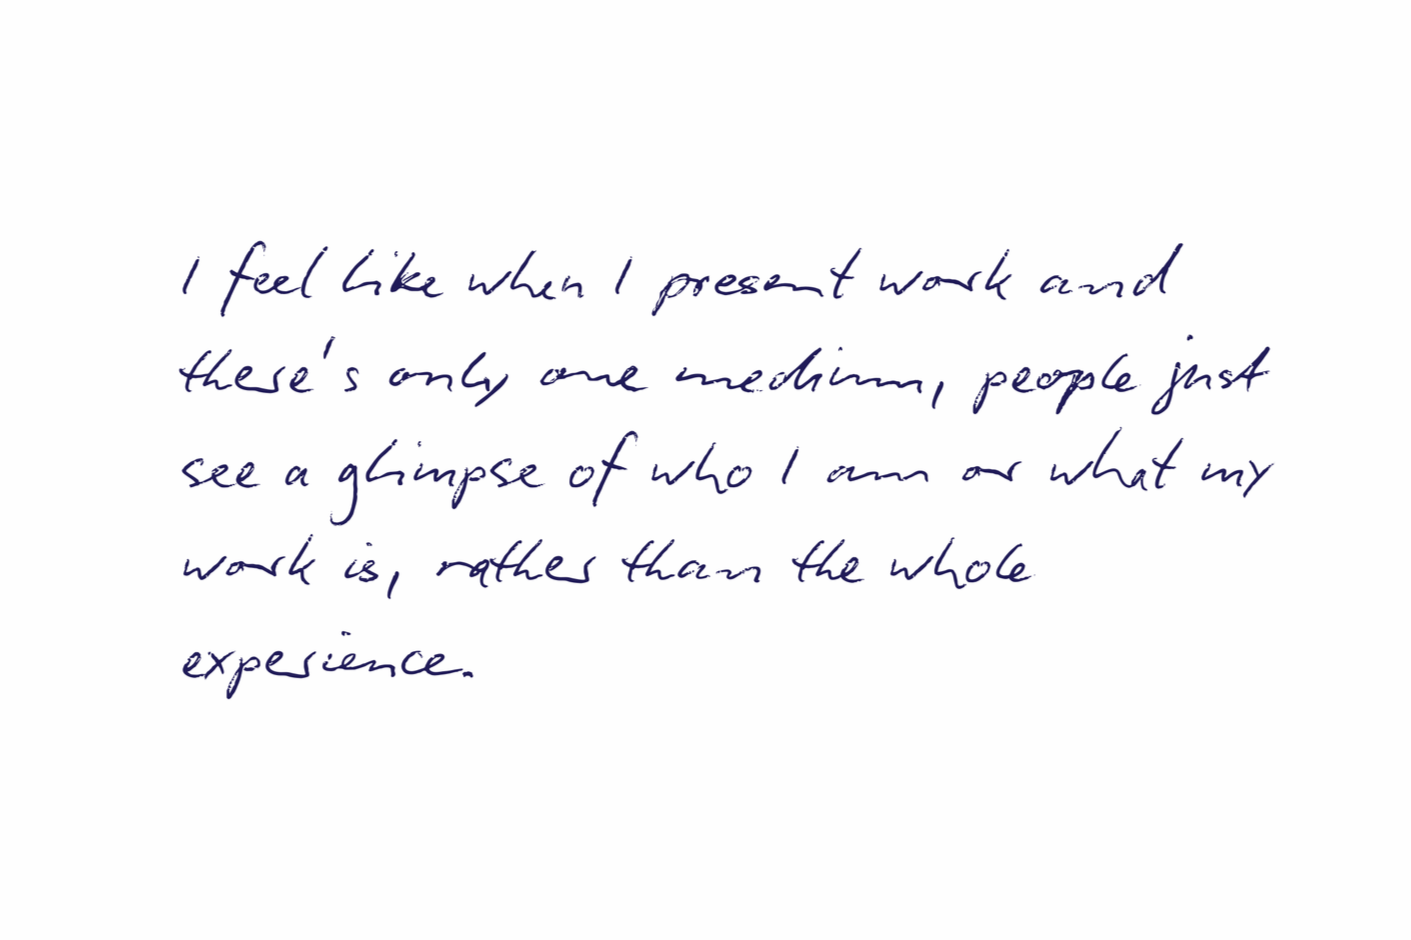 I feel like when I present work and
there's only one medium, people just
see a glimpse of who I am or what my
work is, rather than the whole
experience.